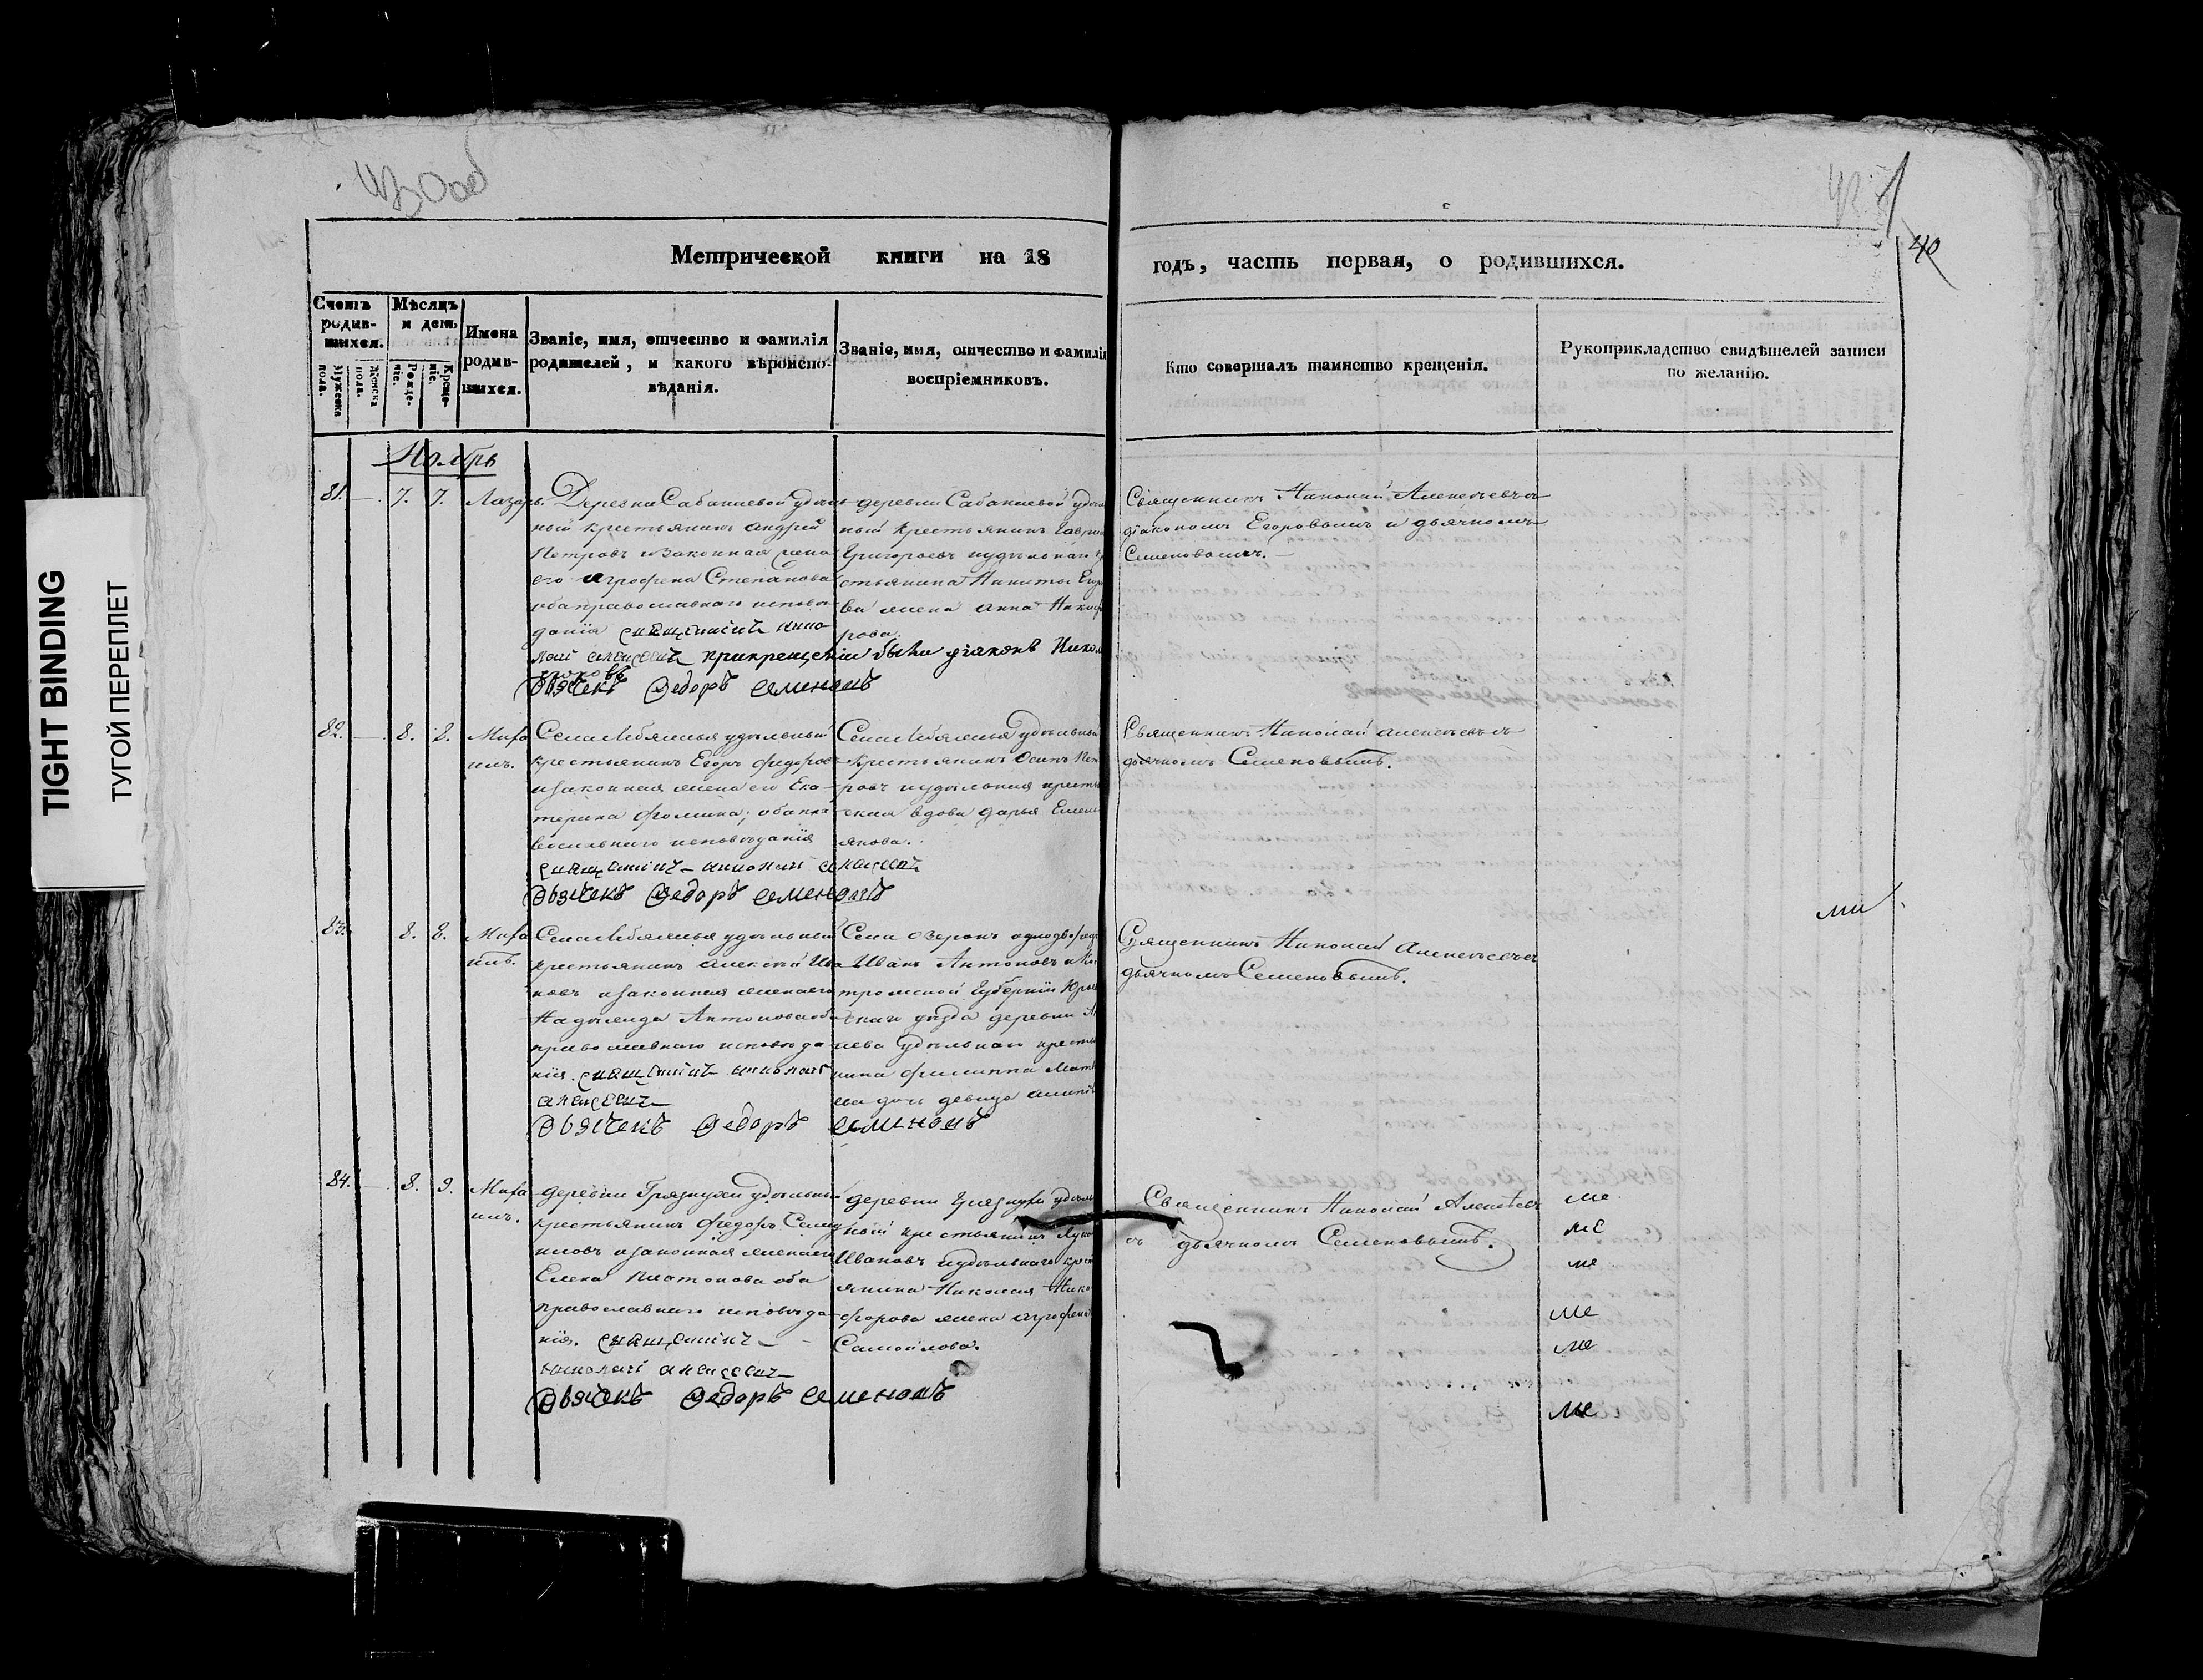 TIGHT BINDING
ТУГОЙ ПЕРЕПЛЕТ
40
Метрической книги на 18
годъ, часть первая, о родившихся.
Счетъ родив-
шихся.
Мужеска
пола.
Женска
пола.
Мѣсяцъ
и день
Рожде-
ніе.
Креще-
ніе.
Имена
родив-
шихся.
Званіе, имя, отчество и фамилія
родителей, и какого вѣроиспо-
вѣданія.
Званіе, имя, отчество и фамилія
воспріемниковъ.
Кто совершалъ таинство крещенія.
Рукоприкладство свидѣтелей записи
по желанію.
Ноябрь
81. — 7. 7. Лазарь.
Деревни Сабанчевой удѣль
ный крестьянинъ Андрей
Петровъ и законная жена
его Агрофена Степанова
оба православнаго исповѣ
данія священникъ Нико
лай Алексеевъ при крещеніи были діаконъ Никол
Егоровъ
Дьячекъ Федоръ Семеновъ
деревни Сабанчевой удѣль
ный крестьянинъ Гаври
Григорьевъ и удѣльнаго кре
стьянина Никиты Егор
ва жена Анна Никиф
рова.
Священникъ Николай Алексѣевъ съ
діакономъ Егоровымъ и дьячкомъ
Семеновымъ.
82. — 8. 8. Миха
илъ.
Села Лебяжья удѣльный
крестьянинъ Егоръ Федоров
и законная жена его Ека
терина Фомина; оба пра
вославнаго исповѣданія
священникъ Николай Алексеевъ
Дьячекъ Федоръ Семеновъ
Села Лебяжья удѣльный
крестьянинъ Осипъ Пет
ровъ и удѣльная кресть
ская вдова Дарья Емель
янова.
Священникъ Николай Алексѣевъ съ
дьячкомъ Семеновымъ.
83. 8. 8. Миха
илъ.
Села Лебяжья удѣльный
крестьянинъ Алексѣй Ива
новъ и законная жена его
Надежда Антонова оба
православнаго исповѣда
нія. священникъ Николай
Алексеевъ
Дьячекъ Федоръ Семеновъ
Села Озерокъ однодворец
Иванъ Антоновъ и Ко
тромской Губерніи Юрье
скаго уѣзда деревни
нева удѣльнаго кресть
нина Филиппа Матв
ева дочь девица
Священникъ Николай Алексѣевъ съ
дьячкомъ Семеновымъ.
84. — 8. 9. Миха
илъ.
деревни Грязнухи удѣльный
крестьянинъ Федоръ Саму
иловъ и законная жена его
Елена Платонова оба
православнаго исповѣда
нія. священникъ
Николай Алексеевъ
Дьячекъ Федоръ Семеновъ
деревни Грязнухи удѣль
ный крестьянинъ Лука
Ивановъ и удѣльнаго крест
янина Николая Ники
форова жена Агрофена
Самойлова.
Священникъ Николай Алексѣевъ
съ дьячкомъ Семеновымъ.